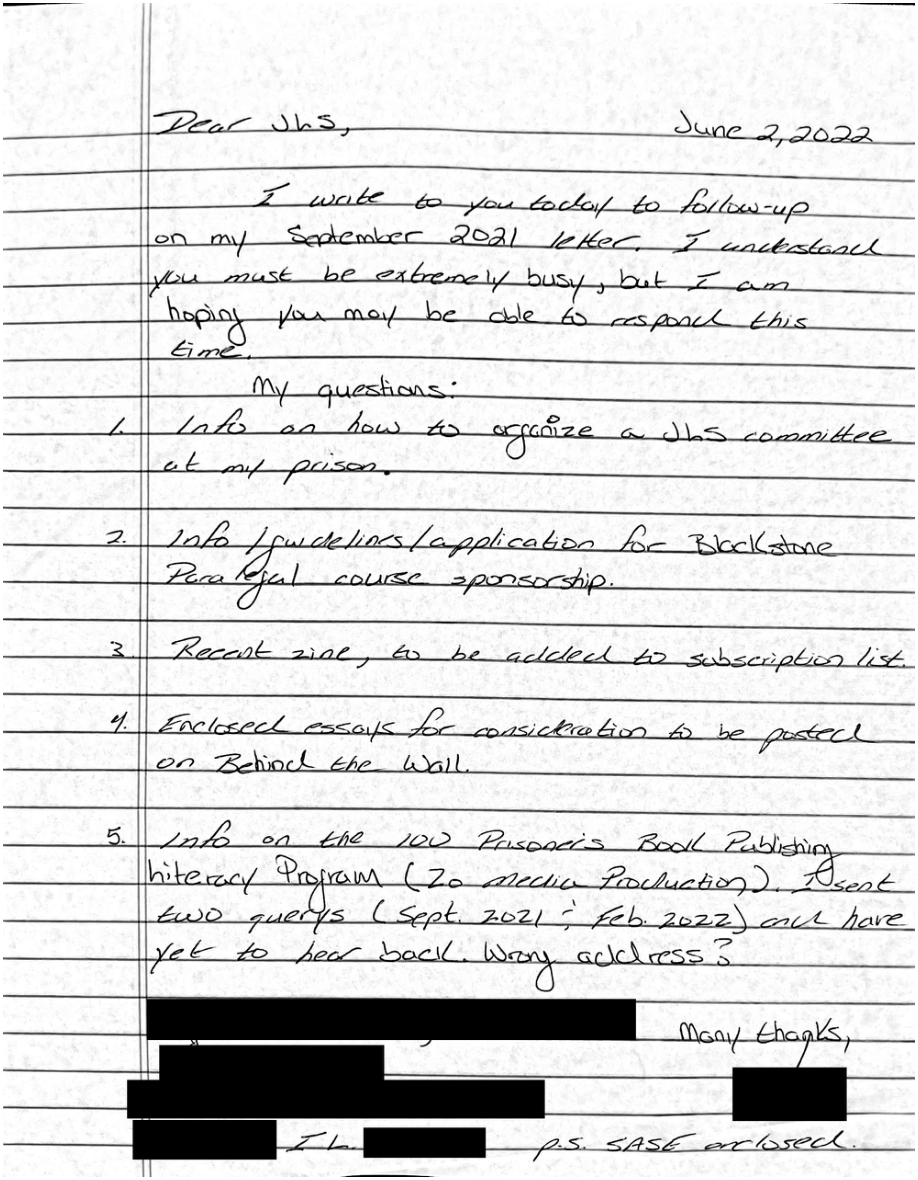 Dear JLS,
June 2, 2022
I write to you today to follow-up
on my September 2021 letter. I understand
you must be extremely busy, but I am
hoping you may be able to respond this
time.
My questions:
1. Info on how to organize a JLS committee
at my prison.
2. Info/guidelines/application for Blackstone
Paralegal course sponsorship.
3. Recent zine, to be added to subscription list
4. Enclosed essays for consideration to be posted
on Behind the Wall.
5. Info on the 100 Prisoner's Book Publishing
Literacy Program (Zo Media Production). I sent
two querys (Sept. 2021 & Feb. 2022) and have
yet to hear back. Wrong address?
Many thanks,
IL
p.s. SASE enclosed.